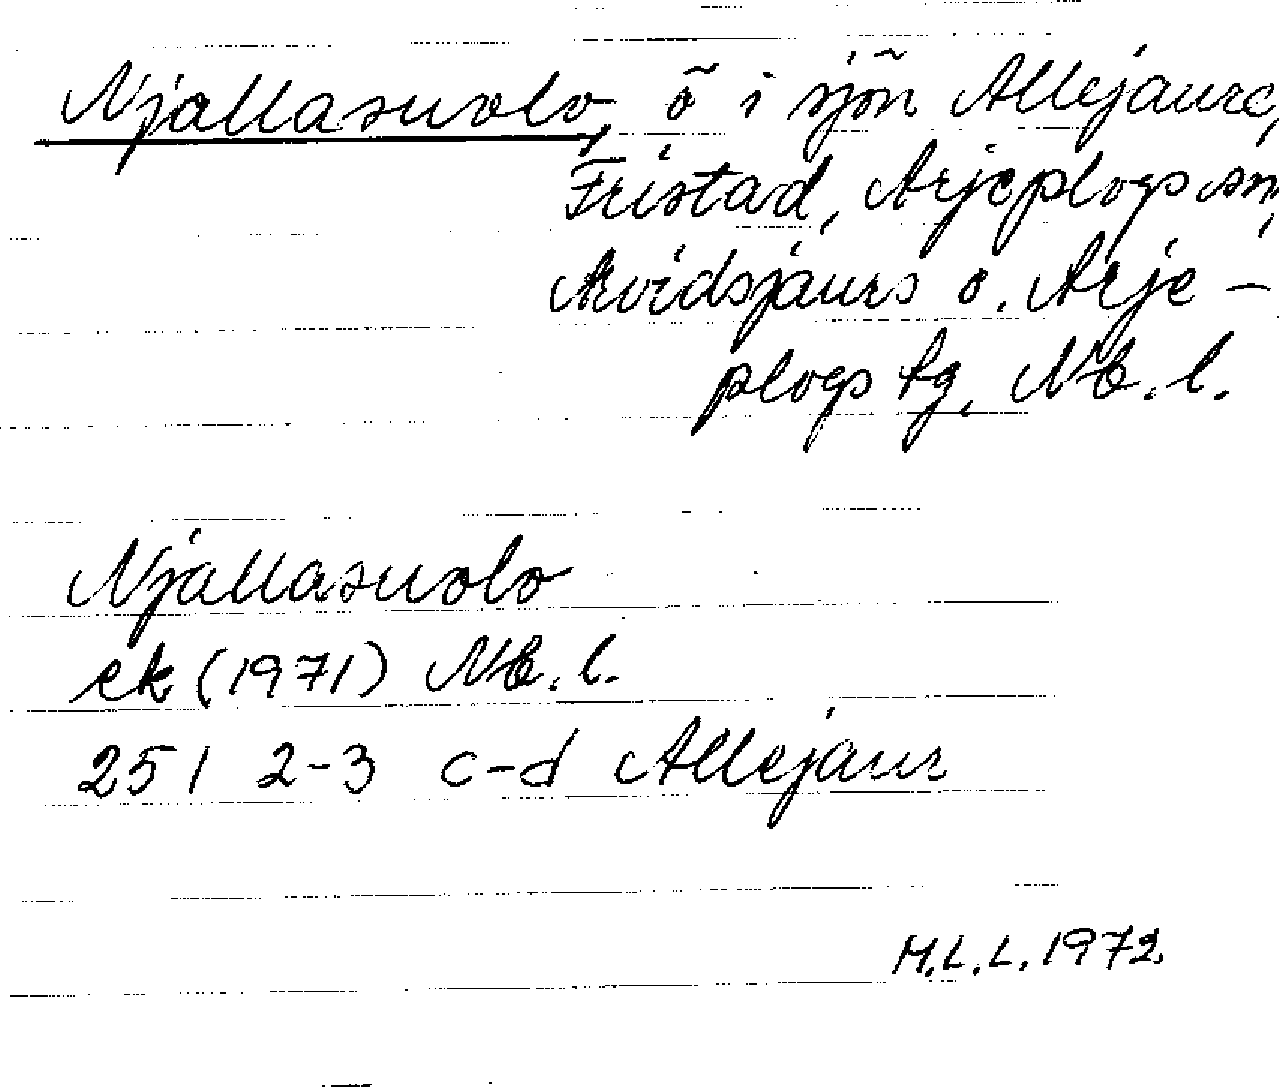 Njallasuolo, ö i sjön Allejaure,
Fristad, Arjeplogs sn,
Arvidsjaurs o. Arje-
plogs tg, Nb. l.
Njallasuolo
ek (1971) Nb. l.
251 2-3 c-d Allejaur
M.L.L. 1972